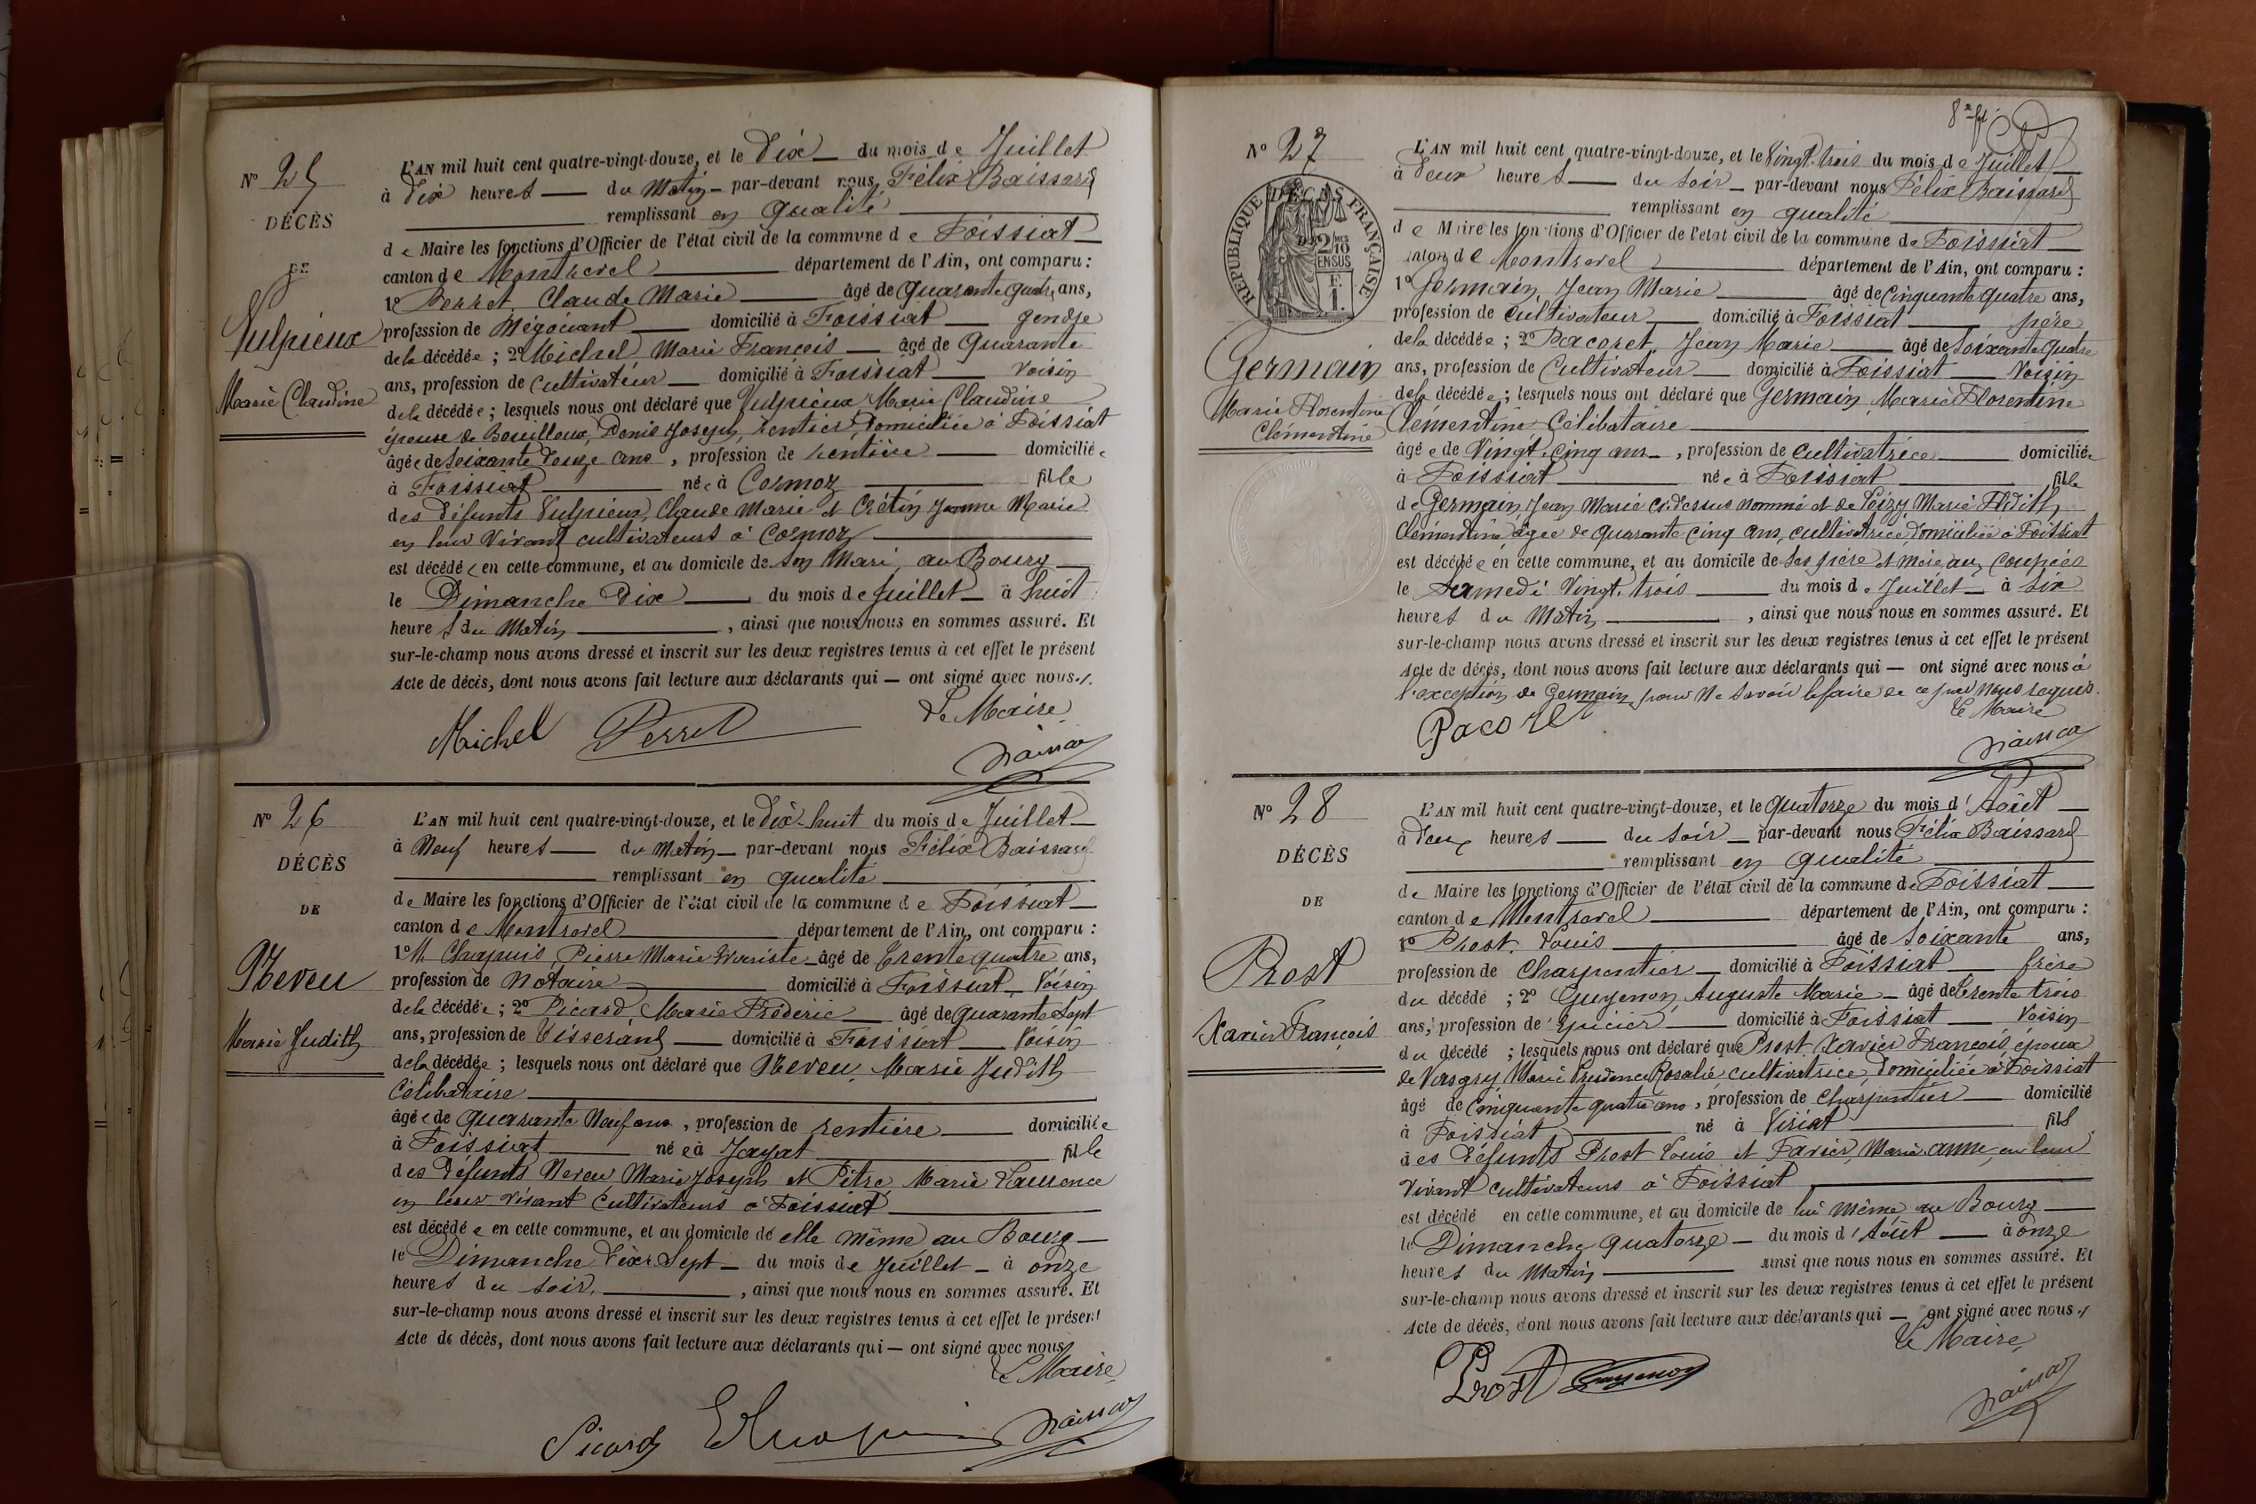 N° 25
DÉCÈS
DE
Vulpieux
Marie Claudine
L'AN mil huit cent quatre-vingt-douze, et le Dix du mois de Juillet
à Dix heures du Matin par-devant nous Félix Baissard
remplissant en qualité
de Maire les fonctions d'Officier de l'état civil de la commune de Foissiat
canton de Montrevel département de l'Ain, ont comparu :
1° Perret Claude Marie âgé de quarante quatre ans,
profession de Négociant domicilié à Foissiat gendre
de la décédée ; 2° Michel Marie François âgé de Quarante
ans, profession de Cultivateur domicilié à Foissiat Voisin
de la décédée ; lesquels nous ont déclaré que Vulpieux Marie Claudine
épouse de Bouilloux, Denis Joseph, rentier, domiciliée à Foissiat
âgée de Soixante douze ans, profession de rentière domiciliée
à Foissiat née à Cormoz fille
des défunts Vulpieux, Claude Marie et Crétin Jeanne Marie
en leur Vivant cultivateurs à Cormoz
est décédée en cette commune, et au domicile de son Mari, au Bourg
le Dimanche Dix du mois de Juillet à huit
heures du Matin, ainsi que nous nous en sommes assuré. Et
sur-le-champ nous avons dressé et inscrit sur les deux registres tenus à cet effet le présent
Acte de décès, dont nous avons fait lecture aux déclarants qui — ont signé avec nous.
Le Maire
Michel Perret Baissard
N° 26
DÉCÈS
DE
Neveu
Marie Judith
L'AN mil huit cent quatre-vingt-douze, et le Dix-huit du mois de Juillet
à Neuf heures du Matin par-devant nous Félix Baissard
remplissant en qualité
de Maire les fonctions d'Officier de l'état civil de la commune de Foissiat
canton de Montrevel département de l'Ain, ont comparu :
1° M. Chapuis, Pierre Marie Evariste âgé de trente quatre ans,
profession de Notaire domicilié à Foissiat Voisin
de la décédée ; 2° Picard, Marie Frédéric âgé de quarante Sept
ans, profession de Tisserand domicilié à Foissiat Voisin
de la décédée ; lesquels nous ont déclaré que Neveu, Marie Judith
Célibataire
âgée de quarante Neuf ans, profession de rentière domiciliée
à Foissiat née à Jayat fille
des défunts Neveu Marie Joseph et Pitre Marie Laurence
en leur vivant Cultivateurs à Foissiat
est décédée en cette commune, et au domicile de elle même au Bourg
le Dimanche Dix Sept du mois de Juillet à onze
heures du soir, ainsi que nous nous en sommes assuré. Et
sur-le-champ nous avons dressé et inscrit sur les deux registres tenus à cet effet le présent
Acte de décès, dont nous avons fait lecture aux déclarants qui — ont signé avec nous
Le Maire,
Picard Baissard
8e
N° 27
RÉPUBLIQUE FRANÇAISE
2/10 EN SUS
DÉCÈS
Germain
Marie Florentine
Clémentine
L'AN mil huit cent quatre-vingt-douze, et le Vingt-trois du mois de Juillet
à deux heures du soir par-devant nous Félix Baissard
remplissant en qualité
de Maire les fonctions d'Officier de l'état civil de la commune de Foissiat
canton de Montrevel département de l'Ain, ont comparu :
1° Germain, Jean Marie âgé de Cinquante quatre ans,
profession de Cultivateur domicilié à Foissiat père
de la décédée ; 2° Pacoret, Jean Marie âgé de Soixante quatre
ans, profession de Cultivateur domicilié à Foissiat Voisin
de la décédée ; lesquels nous ont déclaré que Germain, Marie Florentine
Clémentine Célibataire
âgée de Vingt-cinq ans, profession de Cultivatrice domiciliée
à Foissiat née à Foissiat fille
de Germain, Jean Marie ci-dessus nommé et de Marie
Clémentine âgée de quarante cinq ans, cultivatrice domiciliée à Foissiat
est décédée en cette commune, et au domicile de ses père et mère aux
le Samedi Vingt-trois du mois de Juillet à six
heures du Matin, ainsi que nous nous en sommes assuré. Et
sur-le-champ nous avons dressé et inscrit sur les deux registres tenus à cet effet le présent
Acte de décès, dont nous avons fait lecture aux déclarants qui — ont signé avec nous à
l'exception de Germain, pour Ne savoir le faire de ce par nous requis.
Le Maire
Pacoret Baissard
N° 28
DÉCÈS
DE
Prost
Xavier François
L'AN mil huit cent quatre-vingt-douze, et le quatorze du mois d'Août
à deux heures du soir par-devant nous Félix Baissard
remplissant en qualité
de Maire les fonctions d'Officier de l'état civil de la commune de Foissiat
canton de Montrevel département de l'Ain, ont comparu :
1° Prost, Louis âgé de Soixante ans,
profession de Charpentier domicilié à Foissiat frère
du décédé ; 2° Guyenon, Auguste Marie âgé de trente trois
ans, profession de Epicier domicilié à Foissiat Voisin
du décédé ; lesquels nous ont déclaré que Prost Xavier François époux
de Marie Prudence Rosalie cultivatrice, domiciliée à Foissiat
âgé de Cinquante quatre ans, profession de Charpentier domicilié
à Foissiat né à Viriat fils
des Défunts Prost Louis et Favier, Marie anne, en leur
Vivant cultivateurs à Foissiat
est décédé en cette commune, et au domicile de lui même au Bourg
le Dimanche quatorze du mois d'Août à onze
heures du Matin ainsi que nous nous en sommes assuré. Et
sur-le-champ nous avons dressé et inscrit sur les deux registres tenus à cet effet le présent
Acte de décès, dont nous avons fait lecture aux déclarants qui — ont signé avec nous
Le Maire,
Prost Guyenon Baissard